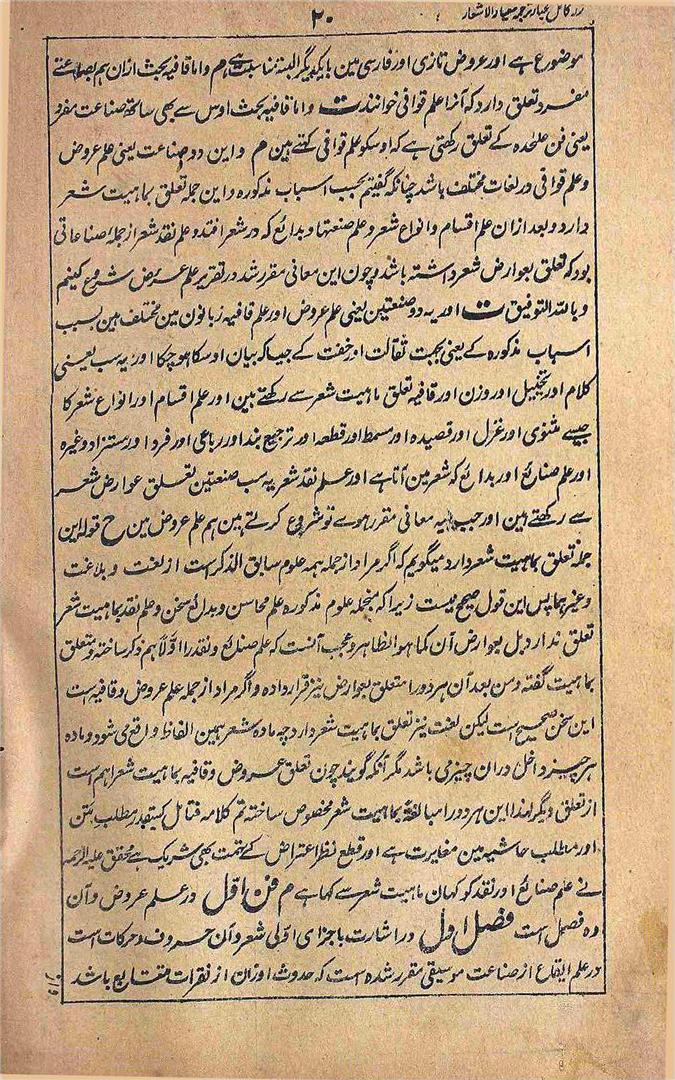 زر کامل عیار ترجمہ معیار الاشعار
۲۰
موضوع ہے اور عروض تازی اور فارسی مین بایکدیگر البتہ مناسبت ہے م واما قافیہ بحث ازان ہم بصناعتے
مفرد تعلق دارد کہ آنرا علم قوافی خوانند ت واما قافیہ بحث اوس سے بھی ساتھ صناعت مفرد
یعنی فن علٰحدہ کے تعلق رکھتی ہے کہ اوسکو علم قوافی کہتے ہین م و این دو صناعت یعنی علم عروض
و علم قوافی در لغات مختلف باشد چنانکہ گفتیم بحسب اسباب مذکورہ و این جملہ تعلق بماہیت شعر
دارد و بعد ازان علم اقسام و انواع شعر و علم صنعتہا و بدائع کہ در شعر افتد و علم نقد شعر از جملہ صناعاتی
بود کہ تعلق بعوارض شعر داشتہ باشد و چون این معانی مقرر شد در تقریر علم عروض شروع کنیم
و باللہ التوفیق ت اور یہ دو صنعتین یعنی علم عروض اور علم قافیہ زبانون مین مختلف ہین بسبب
اسباب مذکورہ کے یعنی بجہت ثقالت اور خفت کے جیسا کہ بیان اوسکا ہو چکا اور یہ سب یعنی
کلام اور تخییل اور وزن اور قافیہ تعلق ماہیت شعر سے رکھتے ہین اور علم اقسام اور انواع شعر کا
جیسے مثنوی اور غزل اور قصیدہ اور مسمط اور قطعہ اور ترجیع بند اور رباعی اور فرد اور مستزاد وغیرہ
اور علم صنایع اور بدائع کہ شعر مین آتا ہے اور علم نقد شعر یہ سب صنعتین تعلق عوارض شعر
سے رکھتے ہین اور جب یہ معانی مقرر ہوے تو شروع کرتے ہین ہم علم عروض مین ح قولہ این
جملہ تعلق بماہیت شعر دارد میگویم کہ اگر مراد از جملہ ہمہ علوم سابق الذکر است از لغت و بلاغت
و غیرہما پس این قول صحیح نیست زیرا کہ منجملہ علوم مذکورہ علم محاسن و بدائع سخن و علم نقد بماہیت شعر
تعلق ندارد بل بعوارض آن کما ہو الظاہر و عجب آنست کہ علم صنائع و نقد را اولًا ہم ذکر ساختہ و متعلق
بماہیت گفتہ و من بعد آن ہر دو را متعلق بعوارض نیز قرار دادہ و اگر مراد از جملہ علم عروض و قافیہ است
این سخن صحیح است لیکن لغت نیز تعلق بماہیت شعر دارد چہ مادہ شعر ہمین الفاظ واقع می شود و مادہ
ہر چیز داخل دران چیز می باشد مگر آنکہ گویند چون تعلق عروض و قافیہ بماہیت شعر اہم است
از تعلق دیگر لہذا این ہر دو را مبالغۃً بماہیت شعر مخصوص ساختہ تم کلامہ فتامل کسیقدر مطلب متن
اور مطلب حاشیہ مین مغایرت ہے اور قطع نظر اعتراض کے تہمت بھی شریک ہے محقق علیہ الرحمہ
نے علم صنائع اور نقد کو کہان ماہیت شعر سے کہا ہے م فن اول در علم عروض و آن
دہ فصل است فصل اول در اشارت باجزای اوّلی شعر و آن حروف و حرکات است
در علم ایقاع از صناعت موسیقی مقرر شدہ است کہ حدوث اوزان از نقرات متتابع باشد